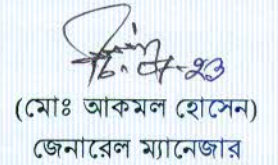 (মোঃ আকমল হোসেন)
জেনারেল ম্যানেজার